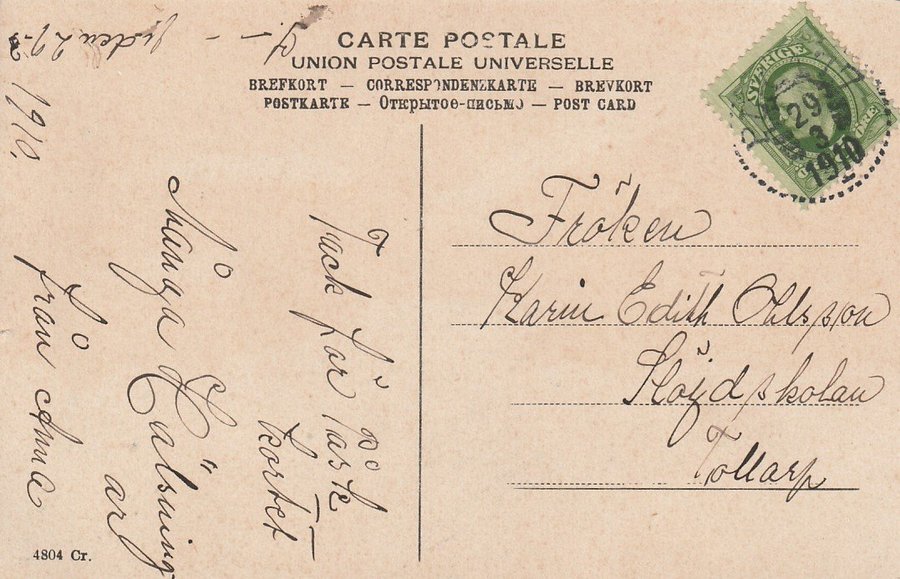 CARTE POSTALE
UNION POSTALE UNIVERSELLE
BREFKORT — CORRESPONDENZKARTE — BREVKORT
POSTKARTE — Открытое-письмо — POST CARD
SVERIGE
29
3
1910
Fröken
Karin Edith Ohlsson
Slöjdskolan
Tollarp
29-3
1910.
Tack för Påsk
kortet
Många Hälsning
ar
från Anna
4804 Cr.